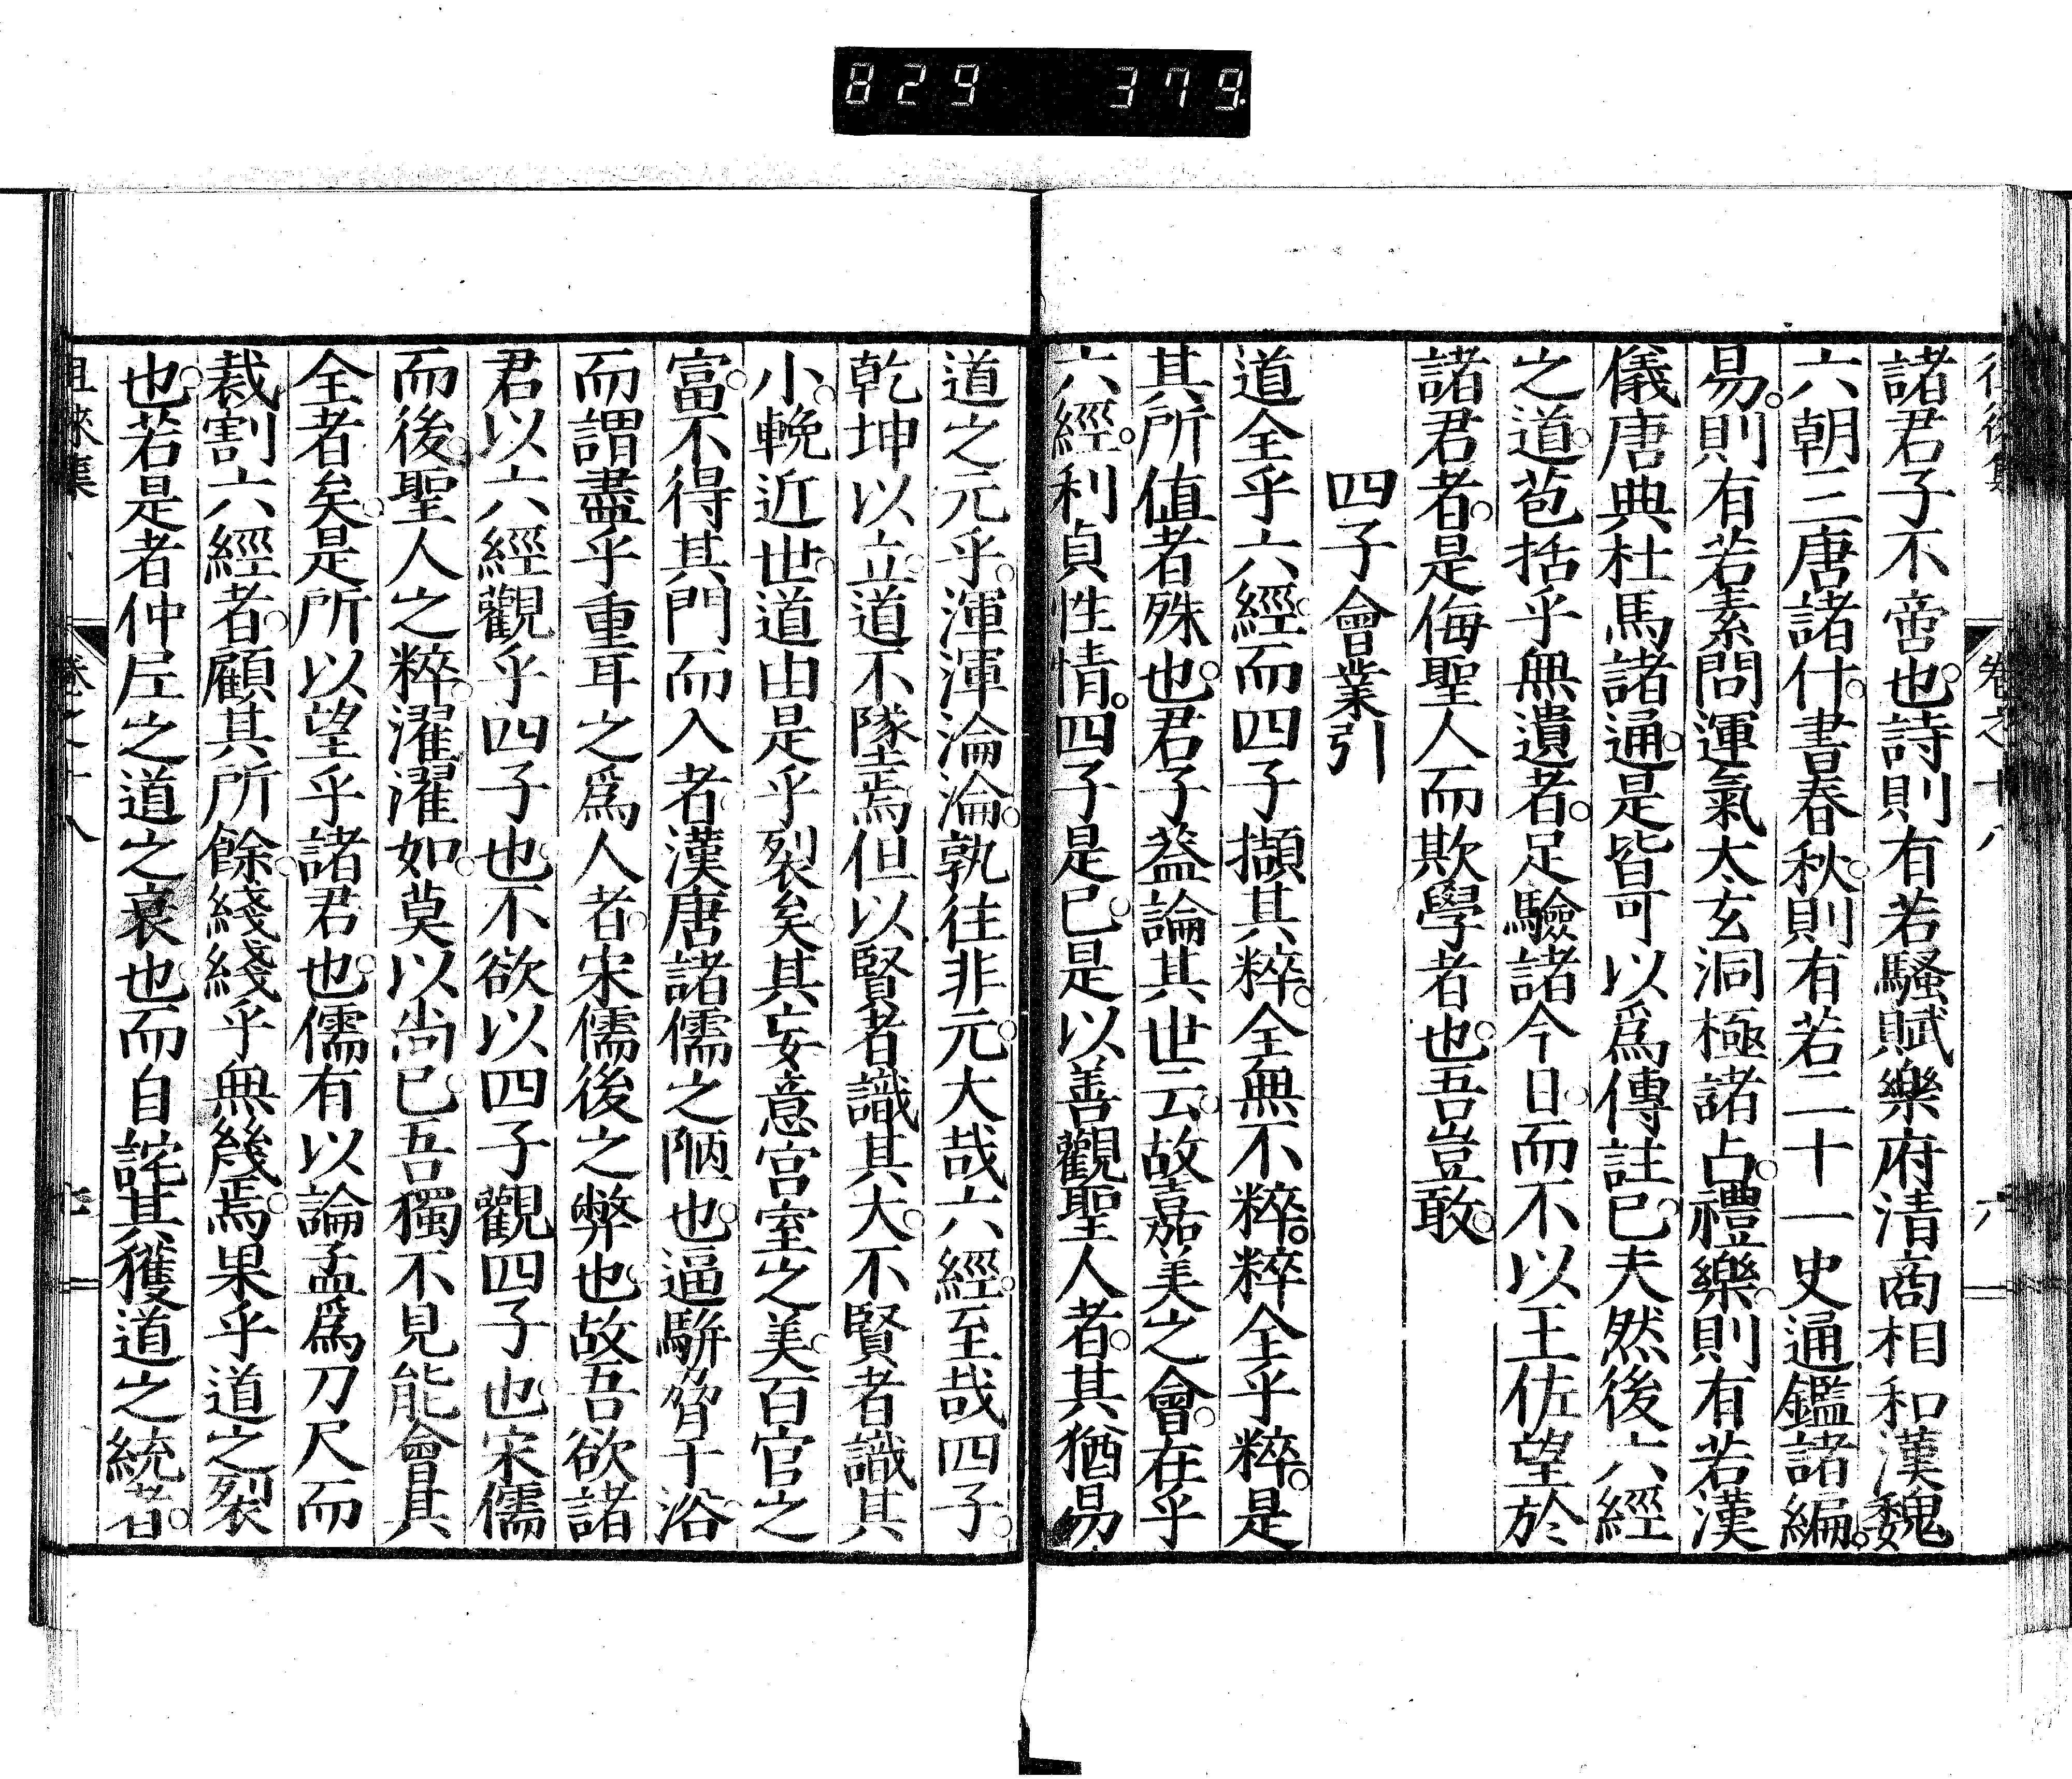 829 379
諸君子不啻也。詩則有若騷賦樂府清商相和漢魏
六朝三唐諸什。書春秋。則有若二十一史通鑑諸編。
易。則有若素問運氣太玄洞極諸占。禮樂。則有若漢
儀唐典杜馬諸通。是皆可以爲傳註已。夫然後六經
之道。苞括乎無遺者。足驗諸今日。而不以王佐望於
諸君者。是侮聖人而欺學者也。吾豈敢。
四子會業引
道全乎六經。而四子擷其粹。全無不粹。粹全乎粹。是
其所値者殊也。君子葢論其世云。故嘉美之會。在乎
六經。利貞性情。四子是已。是以善觀聖人者。其猶易
道之元乎。渾渾淪淪。孰往非元。大哉六經。至哉四子。
乾坤以立。道不墜焉。但以賢者識其大。不賢者識其
小。輓近世。道由是乎裂矣。其妄意宮室之美。百官之
富。不得其門而入者。漢唐諸儒之陋也。逼駢脅于浴。
而謂盡乎重耳之爲人者。宋儒後之弊也。故吾欲諸
君以六經觀乎四子也。不欲以四子觀四子也。宋儒
而後。聖人之粹。濯濯如。莫以尚已。吾獨不見能會具
全者矣。是所以望乎諸君也。儒有以論孟爲刀尺而
裁割六經者。顧其所餘。綫綫乎無幾焉。果乎道之裂
也。若是者仲尼之道之衰也。而自詫其獲道之統者。
徂徠集 卷之十八